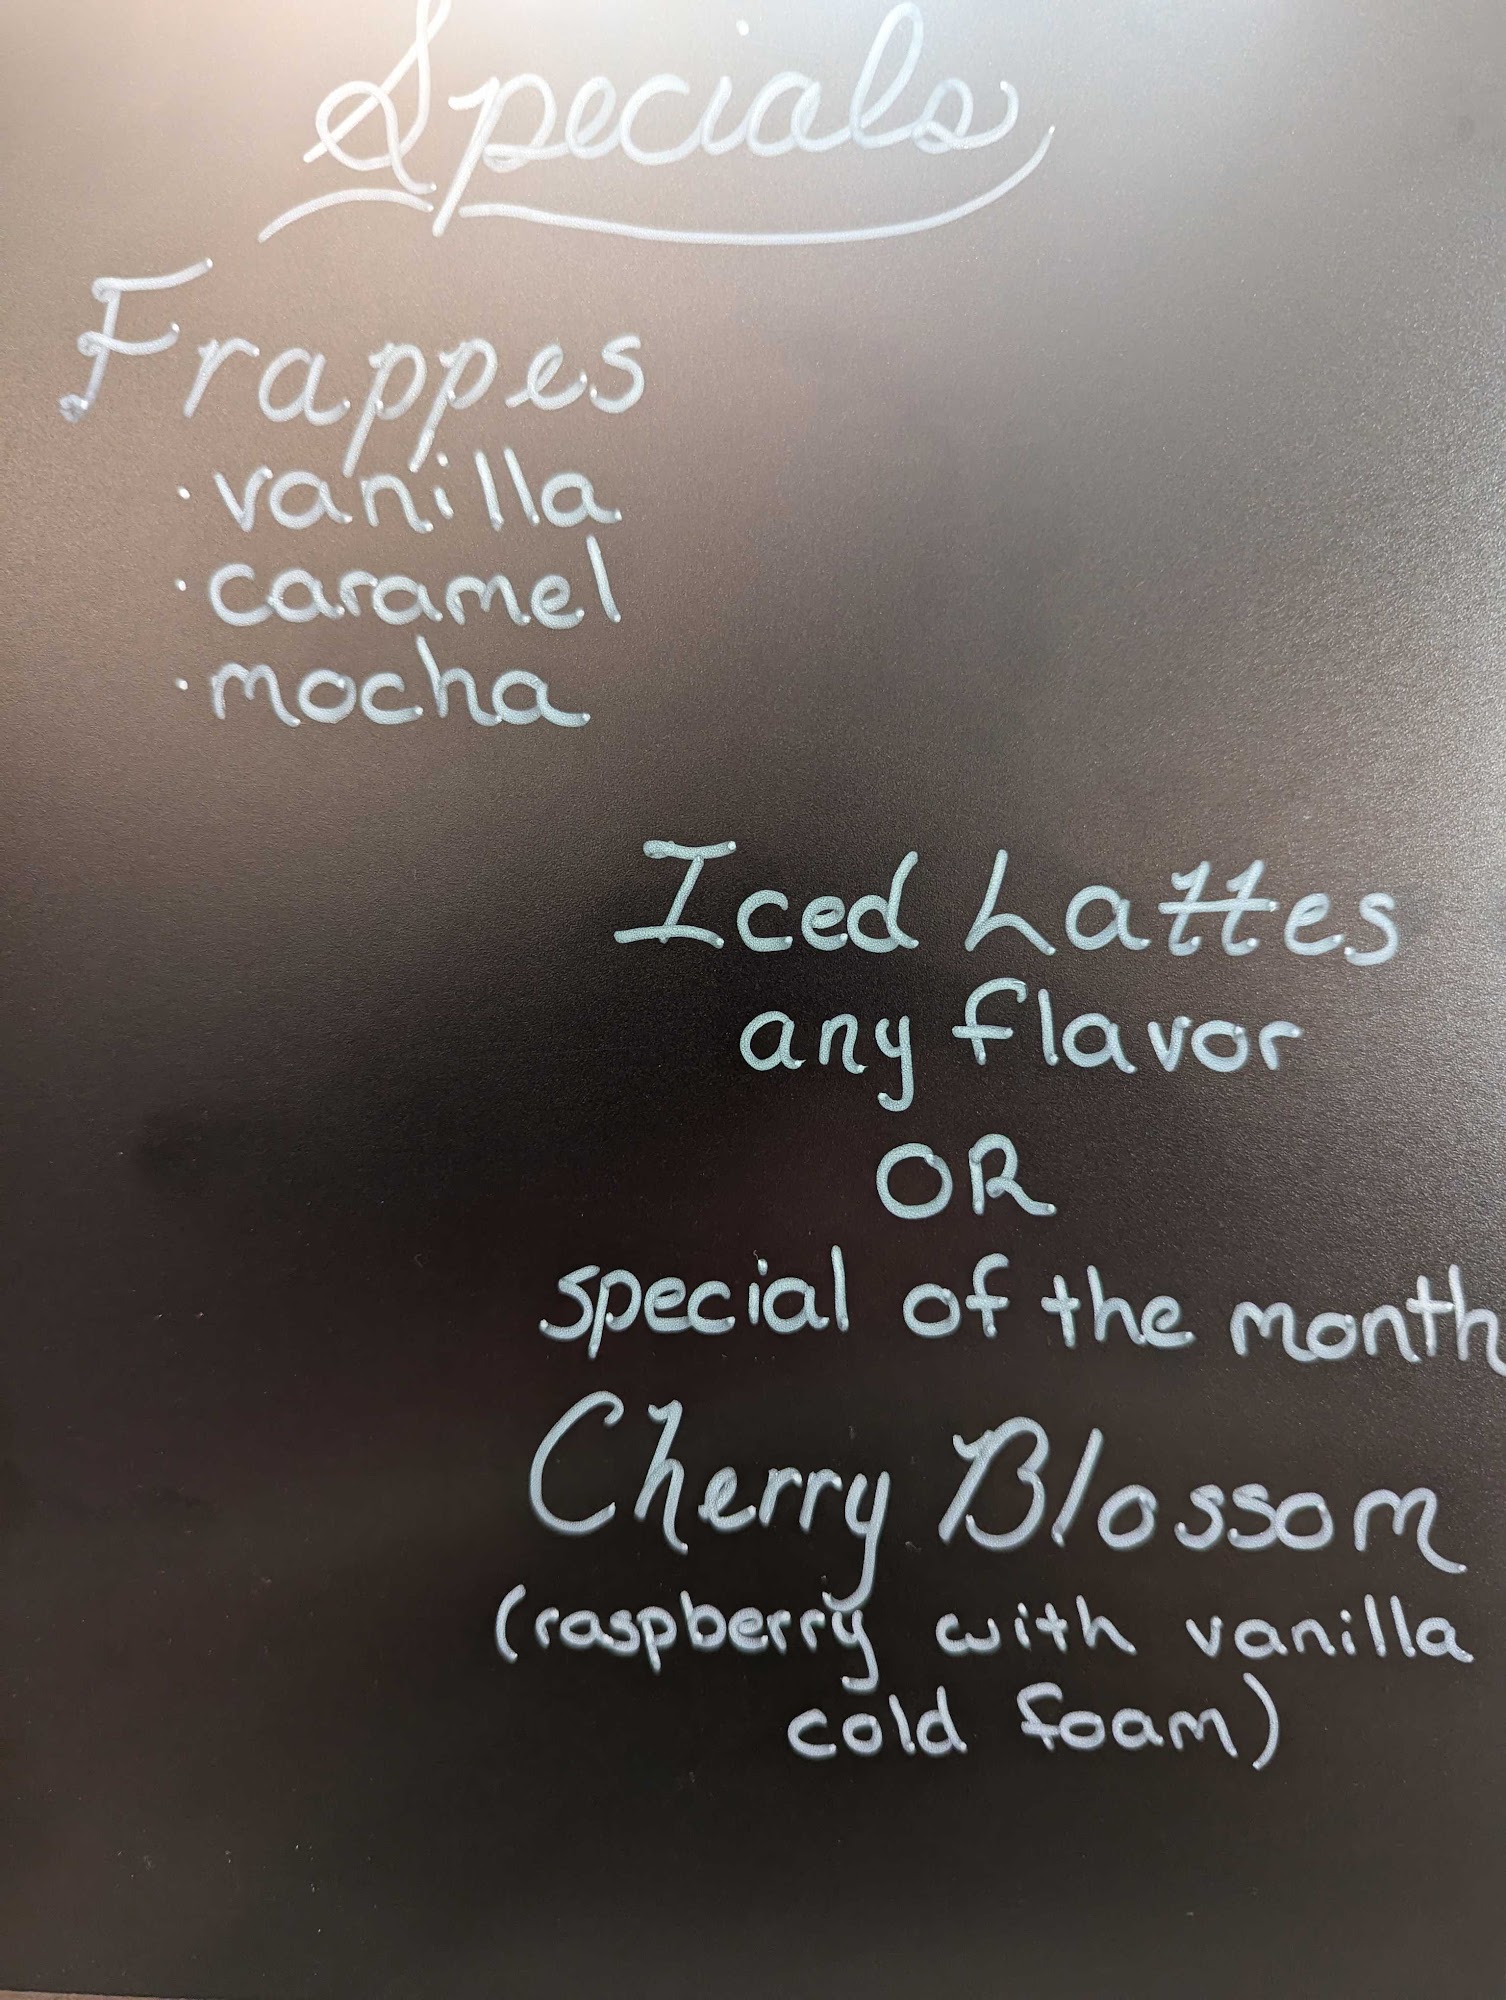 Specials
Frappes
· vanilla
· caramel
· mocha
Iced Lattes
any flavor
OR
special of the month
Cherry Blossom
(raspberry with vanilla
cold foam)